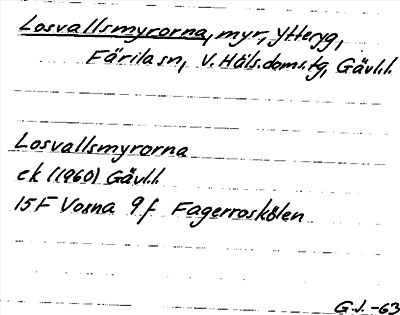 Losvallsmyrorna, myr, Ytteryg,
Färila sn, V. Häls. doms.tg, Gävl.l.
Losvallsmyrorna
ek (1960) Gävl.l.
15F Voxna 9f Fagerroskölen
G.J. -63